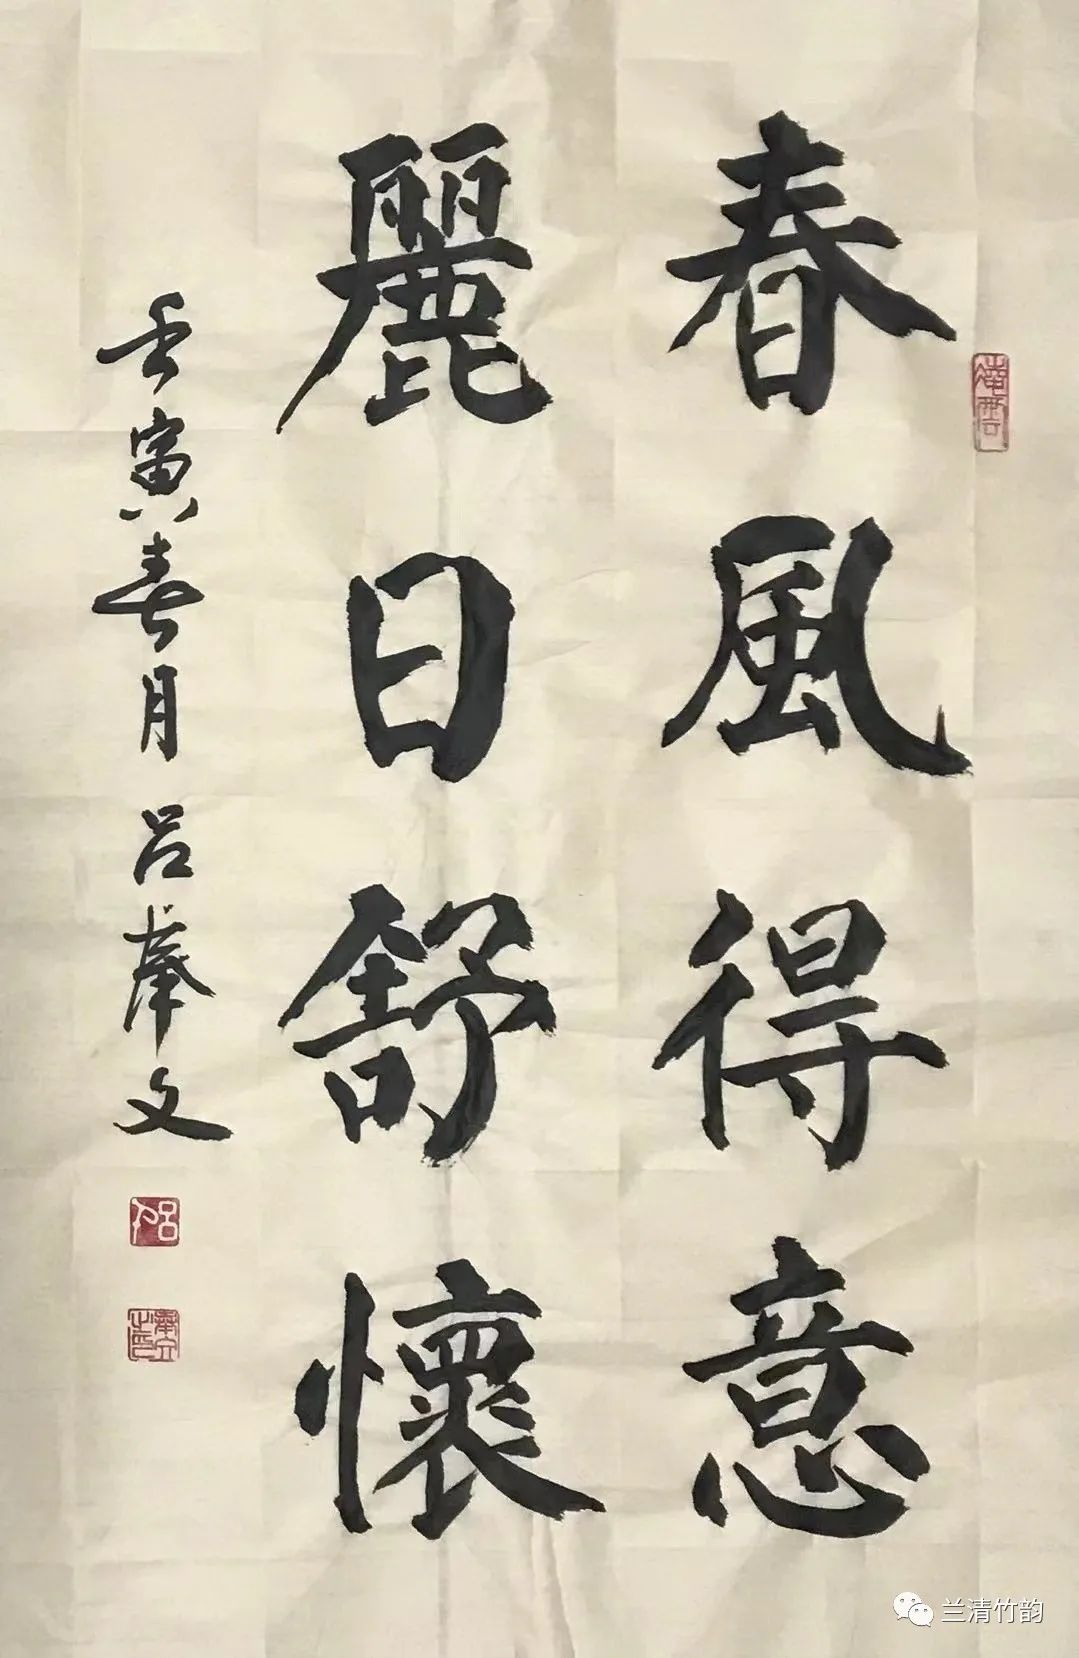 春風得意
麗日舒懷
壬寅春月吕奉文
兰清竹韵